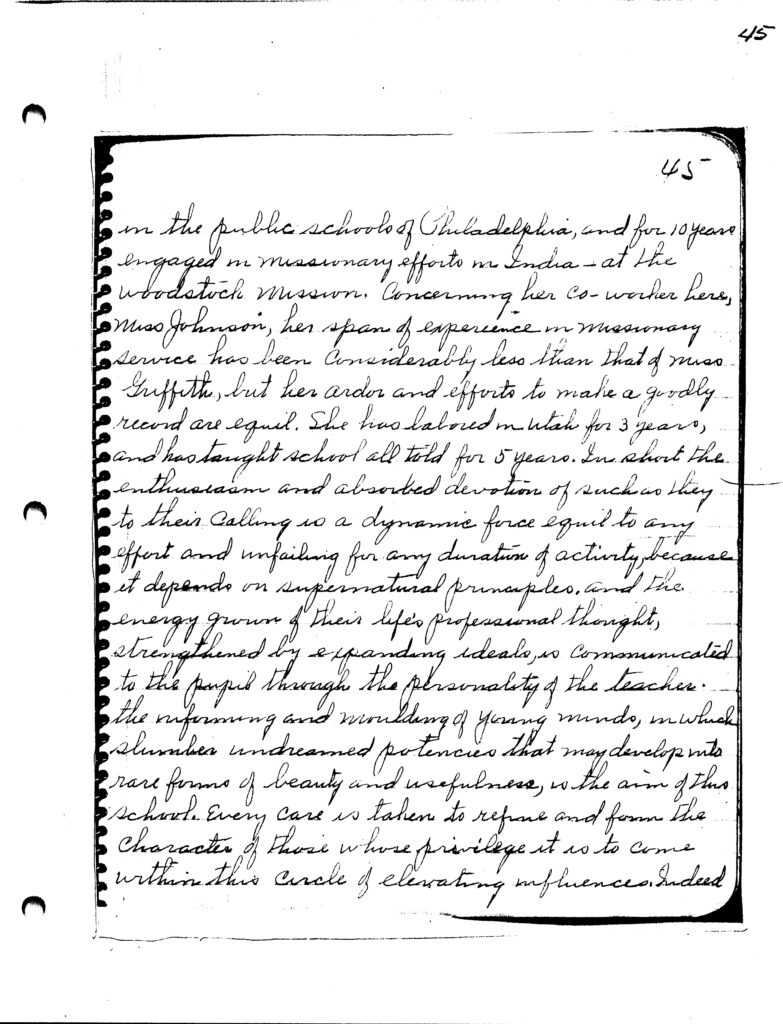 45
45
in the public schools of Philadelphia, and for 10 years
engaged in missionary efforts in India - at the
Woodstock Mission. Concerning her co-worker here,
Miss Johnson, her span of experience in missionary
service has been considerably less than that of Miss
Griffith, but her ardor and efforts to make a goodly
record are equil. She has labored in Utah for 3 years,
and has taught school all told for 5 years. In short the
enthusiasm and absorbed devotion of such as they
to their calling is a dynamic force equil to any
effort and unfailing for any duration of activity, because
it depends on supernatural principles. and the
energy grown of their life's professional thought,
strengthened by expanding ideals, is communicated
to the pupil through the personality of the teacher.
the informing and moulding of young minds, in which
slumber undreamed potencies that may develop into
rare forms of beauty and usefulness, is the aim of this
school. Every care is taken to refine and form the
character of those whose privilege it is to come
within this circle of elevating influences. Indeed